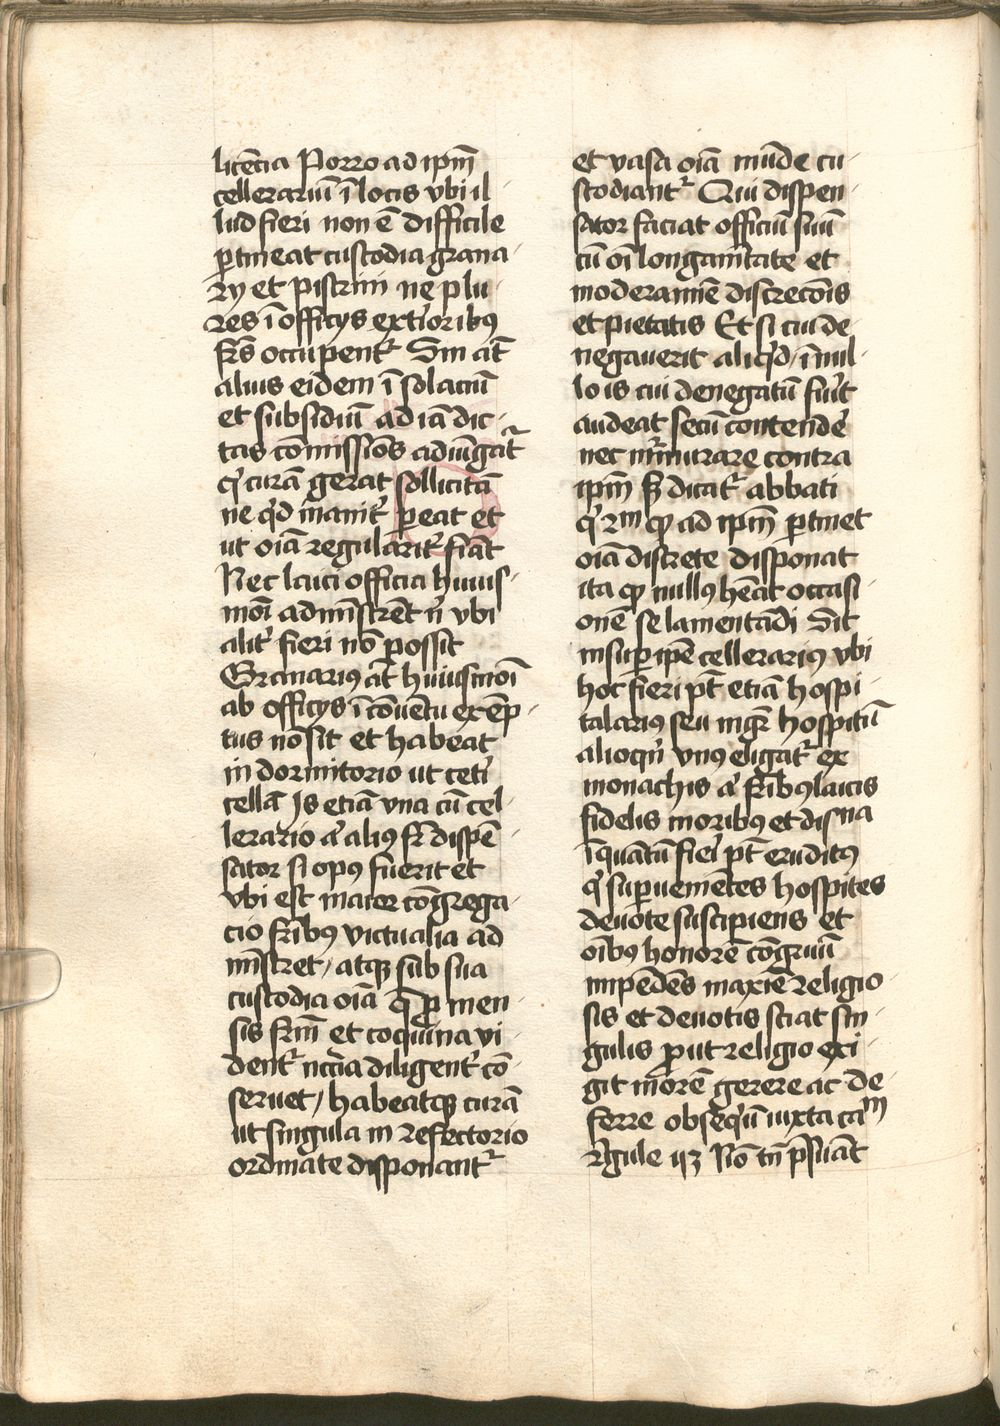 licēcia Porro ad ipm̄
cellerariū ī locis vbi il-
lud fieri non ē difficile
ꝑtineat custodia grana-
ry et pistrini ne plu-
res ī officys ext̄ioribꝰ
fr̄s occupent᷑ Sin aūt
alius eidem ī solaciū
et subsidiū ad iā dic-
tas cōmissiōs adiūgat᷑
qͥ curā gerat sollicitā
ne qͥd īaniť ꝑeat et
ut oīa regulariť fiāt
Nec laici officia huius-
mōi admīstrēt n̄ vbi
aliť fieri nō possit
Grānarius aūt huiusmōi
ab officys ī cōuētu exēp-
tus nō sit et habeat
in dormitorio ut ceťi
cellā Is etiā vna cū cel-
lerario aͥ aliꝰ fr̄ dispē-
sator si opꝰ fuerit et
vbi est maior cōgrega-
cio fr̄ibꝰ victualia ad
mīstret / atqꝫ sub sua
custodia oīa q̄ ꝓ men-
sis fr̄m et coquina vi-
dent᷑ nēcia diligenť cō-
seruet / habeatqꝫ curā
ut singula in refectorio
ordinate disponant᷑
et vasa oīa mūde cu-
stodiant᷑ Qui dispen-
sator faciat officiū suū
cū oī longanītate et
moderamīe discrecōis
et pietatis Et si cui de-
negauerit aliqͥd / ī nul-
lo is cui denegatū fuīt
audeat secū contende᷑
nec m᷑murare contra
ipm̄ sꝫ dicat᷑ abbati
qͥ rᵐ qꝫ ad ipm̄ ꝑtinet
oīa discrete disponat
ita qꝫ nullꝰ hēat occasi-
onē se lamentādi Sit
insuꝑ ipē cellerariꝰ vbi
hoc fieri pt̄ etiā hospi-
talarius seu mgr̄ hospitiū
alioqͥn vnꝰ eligat᷑ ex
monachis aͥ fr̄ibꝰ laicis
fidelis moribꝰ et disͥna
ī quātū fiei pt̄ eruditꝰ
qͥ suꝑuenietes hospites
deuote suscipiens et
oībꝰ honorē cōgruū
impēdēs maxīe religio-
sis et deuotis sciat sin-
gulis ꝓut religio exi-
git morē gerere ac de-
ferre obseqͥū iuxta caᵐ
r̄gule 43 Nō tn̄ p̄suāt